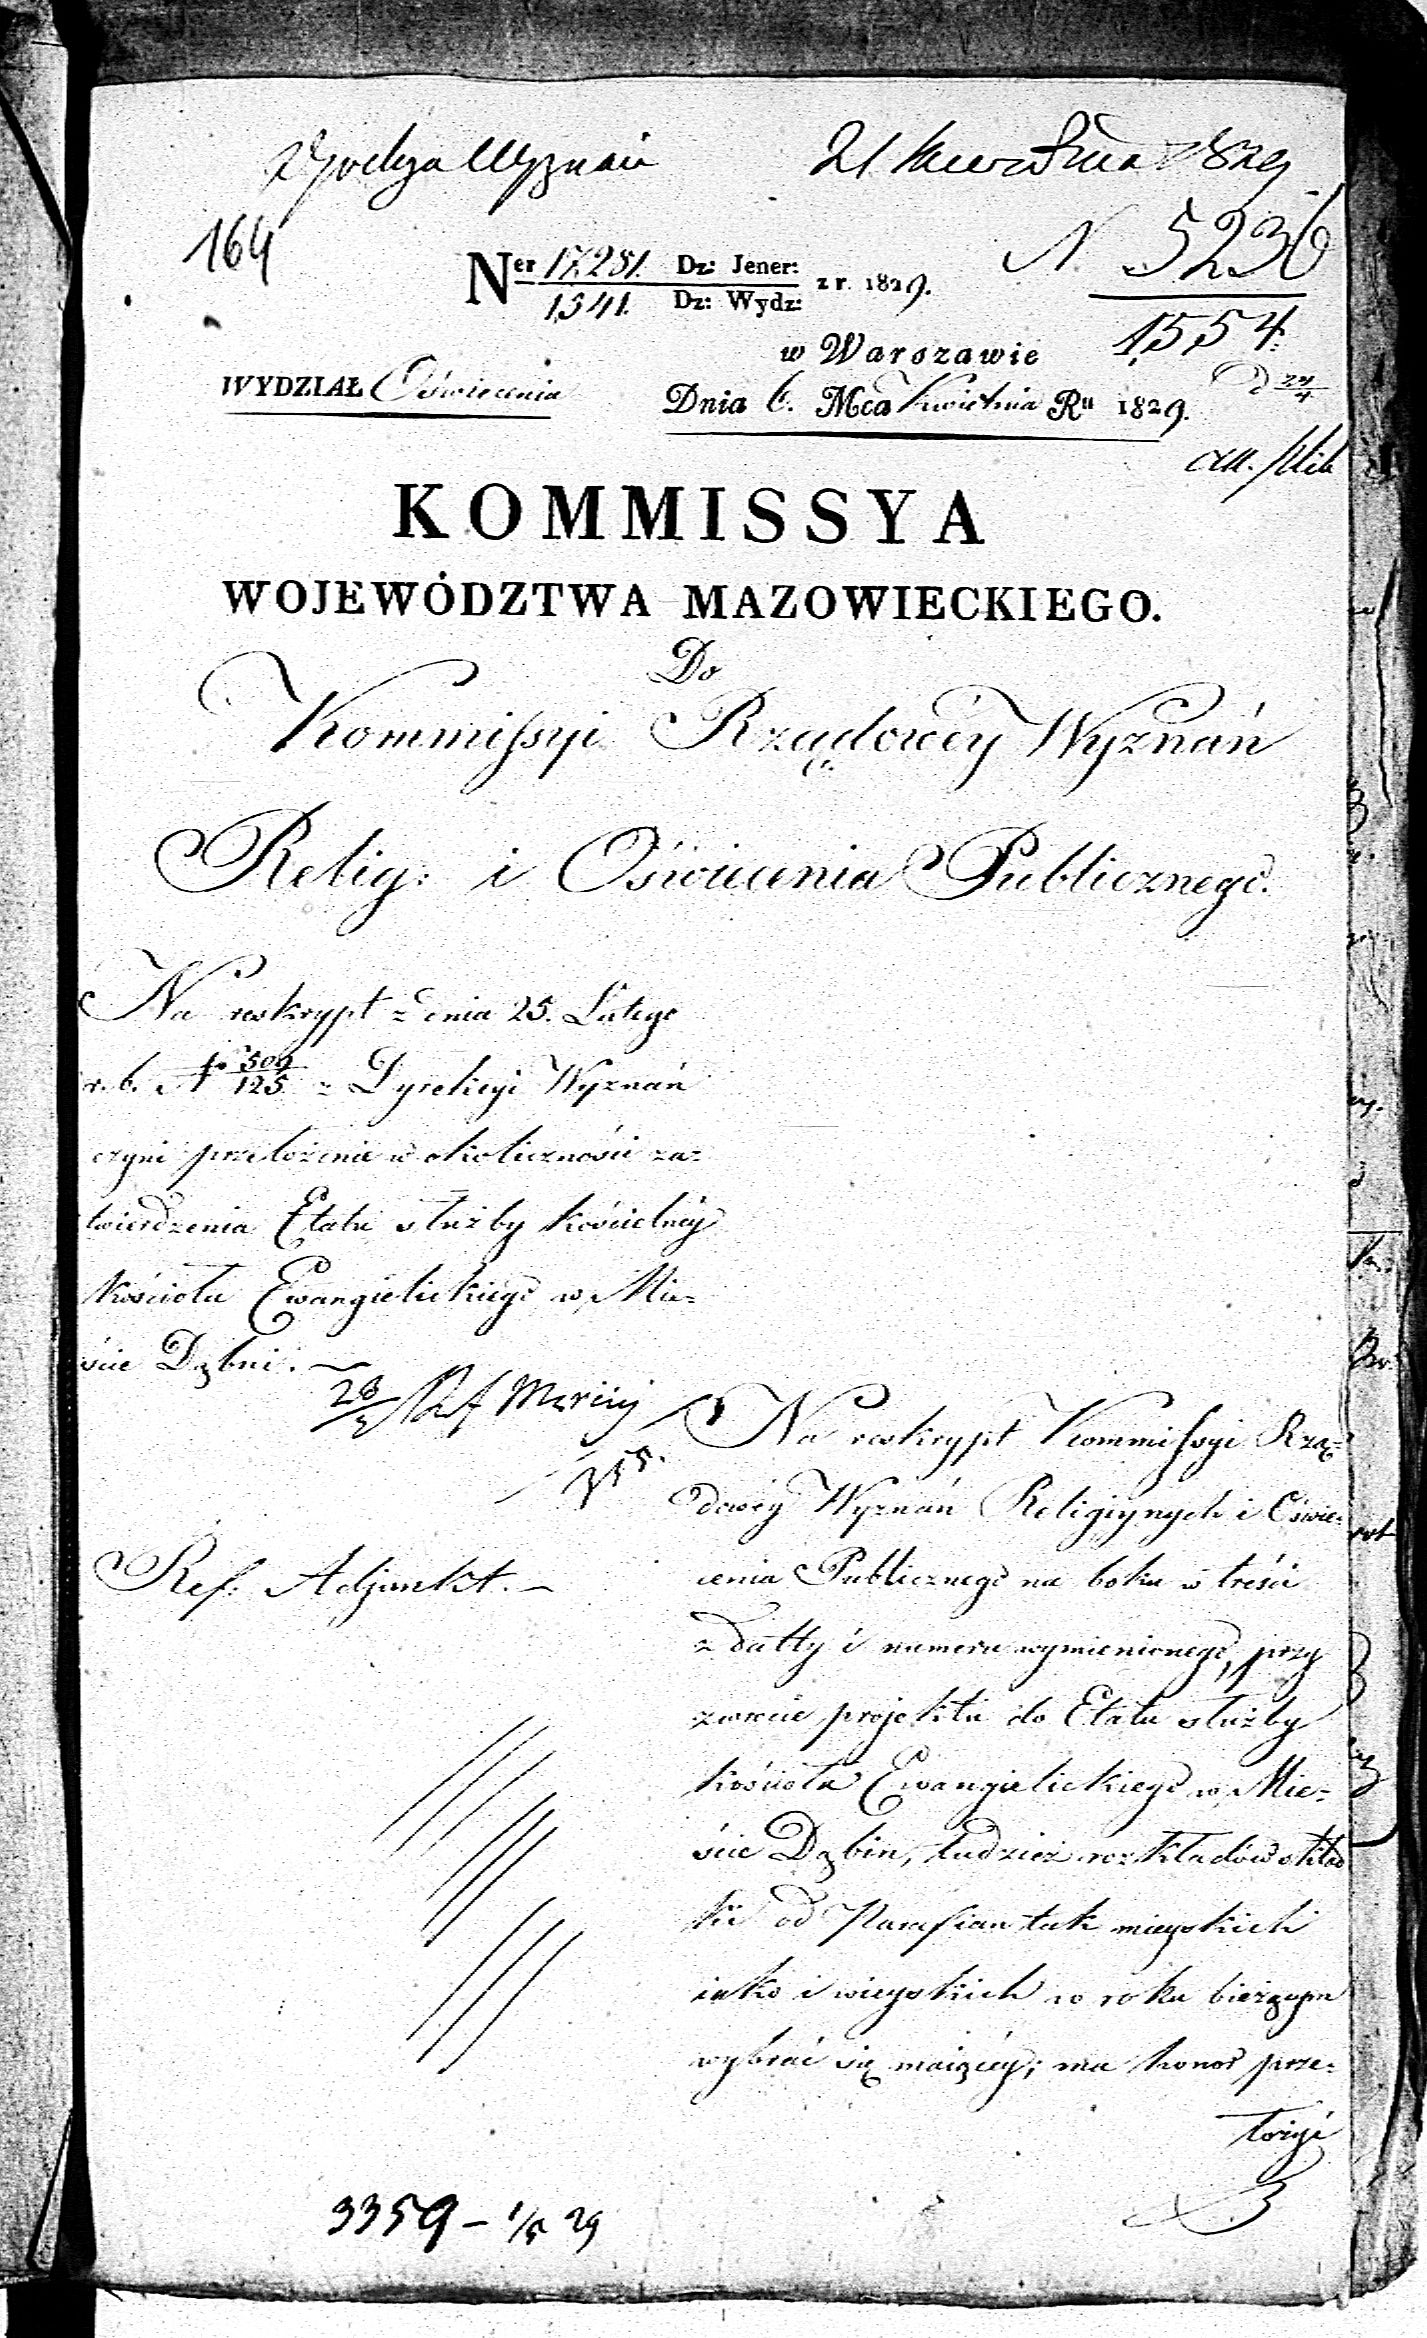 Wyznań 21 Kwietnia 1829
164
N 5236
1554
Ner 17,281. Dz: Jener: z r. 1829.
1541. Dz: Wydz:
w Warszawie
WYDZIAŁ Oświecenia
Dnia 6. Mca Kwietnia Ru 1829.
KOMMISSYA
WOJEWÓDZTWA MAZOWIECKIEGO.
Do
Kommissyi Rządowéy Wyznań
Relig: i Oświecenia Publicznego.
Na reskrypt z dnia 25. Lutego
r. b. No 509/125 z Dyrekcyi Wyznań
czyni przełożenie w okoliczności za=
twierdzenia Etatu służby kościelnéy
kościoła Ewangielickiego w Mie=
ście Dąbni.
28
Ref: Adjunkt. –
Na reskrypt Kommissyi Rzą=
dowéy Wyznań Religiynych i Oświe=
cenia Publicznego na boku w treści
z datty i numeru wymienionego, przy
zwrocie projektu do Etatu służby
kościoła Ewangielickiego w Mie=
ście Dąbin, tudzież rozkładów skład
ki od Parafian tak mieyskich
iako i wieyskich w roku bieżącym
wybrać się maiącéy; ma honor prze=
łożyć
3359 – 1/5 29